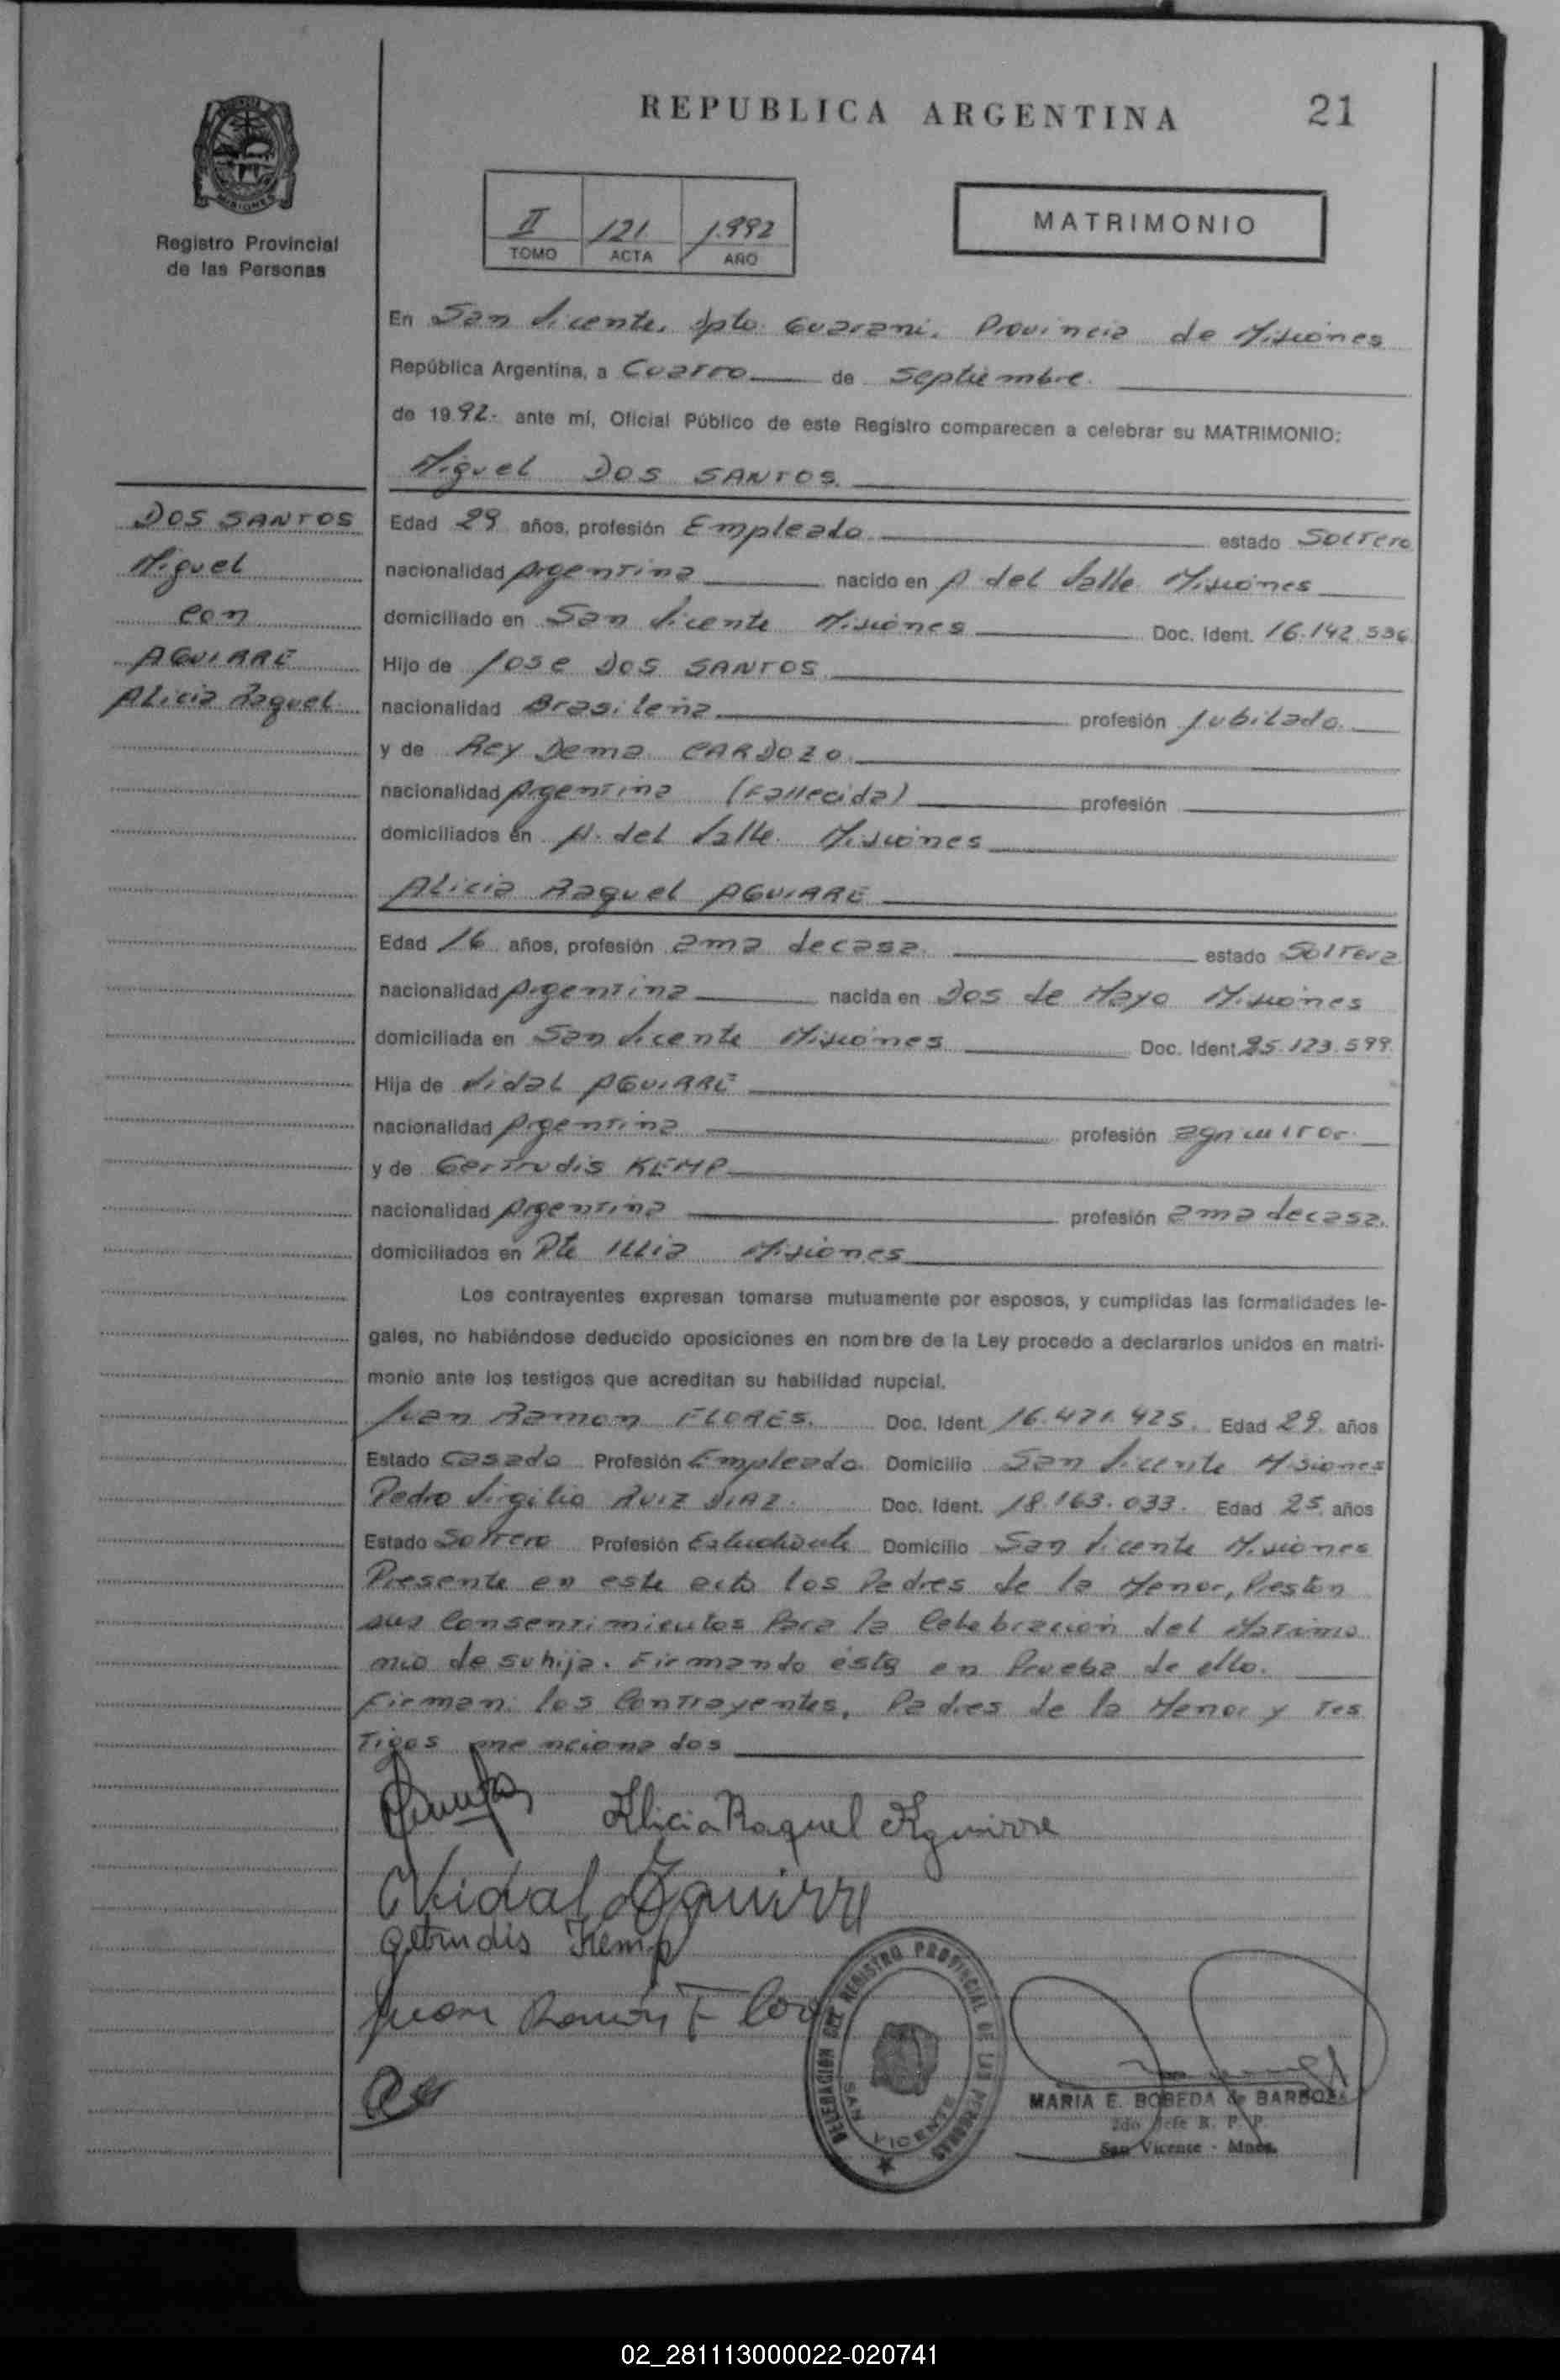 REPUBLICA ARGENTINA
21
MISIONES
Registro Provincial
de las Personas
II 121 1.992
TOMO ACTA AÑO
MATRIMONIO
En San Vicente, Dpto. Guarani. Provincia de Misiones
República Argentina, a Cuatro de Septiembre.
de 1992.- ante mí, Oficial Público de este Registro comparecen a celebrar su MATRIMONIO:
Miguel DOS SANTOS.
DOS SANTOS
Miguel
con
AGUIRRE
Alicia Raquel
Edad 29 años, profesión Empleado. estado Soltero
nacionalidad Argentina nacido en A del Valle Misiones
domiciliado en San Vicente Misiones Doc. Ident. 16.142.536.
Hijo de Jose DOS SANTOS.
nacionalidad Brasileña profesión Jubilado.
y de Rey Dema CARDOZO.
nacionalidad Argentina (Fallecida) profesión
domiciliados en A. del Valle. Misiones
Alicia Raquel AGUIRRE
Edad 16 años, profesión ama de casa. estado Soltera
nacionalidad Argentina nacida en Dos de Mayo Misiones
domiciliada en San Vicente Misiones Doc. Ident. 25.123.599.
Hija de Vidal AGUIRRE
nacionalidad Argentina profesión agricultor.
y de Gertrudis KEMP
nacionalidad Argentina profesión ama de casa.
domiciliados en Pte Illia Misiones
Los contrayentes expresan tomarse mutuamente por esposos, y cumplidas las formalidades le-
gales, no habiéndose deducido oposiciones en nombre de la Ley procedo a declararlos unidos en matri-
monio ante los testigos que acreditan su habilidad nupcial.
Juan Ramon FLORES. Doc. Ident. 16.471.425. Edad 29. años
Estado Casado Profesión Empleado. Domicilio San Vicente Misiones
Pedro Virgilio RUIZ DIAZ. Doc. Ident. 18.163.033. Edad 25. años
Estado Soltero Profesión Estudiante Domicilio San Vicente Misiones
Presente en este acto los Padres de la Menor, Prestan
sus Consentimientos Para la Celebracion del Matrimo
nio de su hija. Firmando ésta en Prueba de ello.
Firman: los Contrayentes, Padres de la Menor y Tes
Tigos mencionados
Alicia Raquel Aguirre
Vidal Aguirre
Getrudis Kemp
Juan Ramón Flores
DELEGACION DEL REGISTRO PROVINCIAL DE LAS PERSONAS
SAN VICENTE
MARIA E. BOBEDA de BARBOZA
2do Jefe R. P. P.
San Vicente - Mnes.
02_281113000022-020741